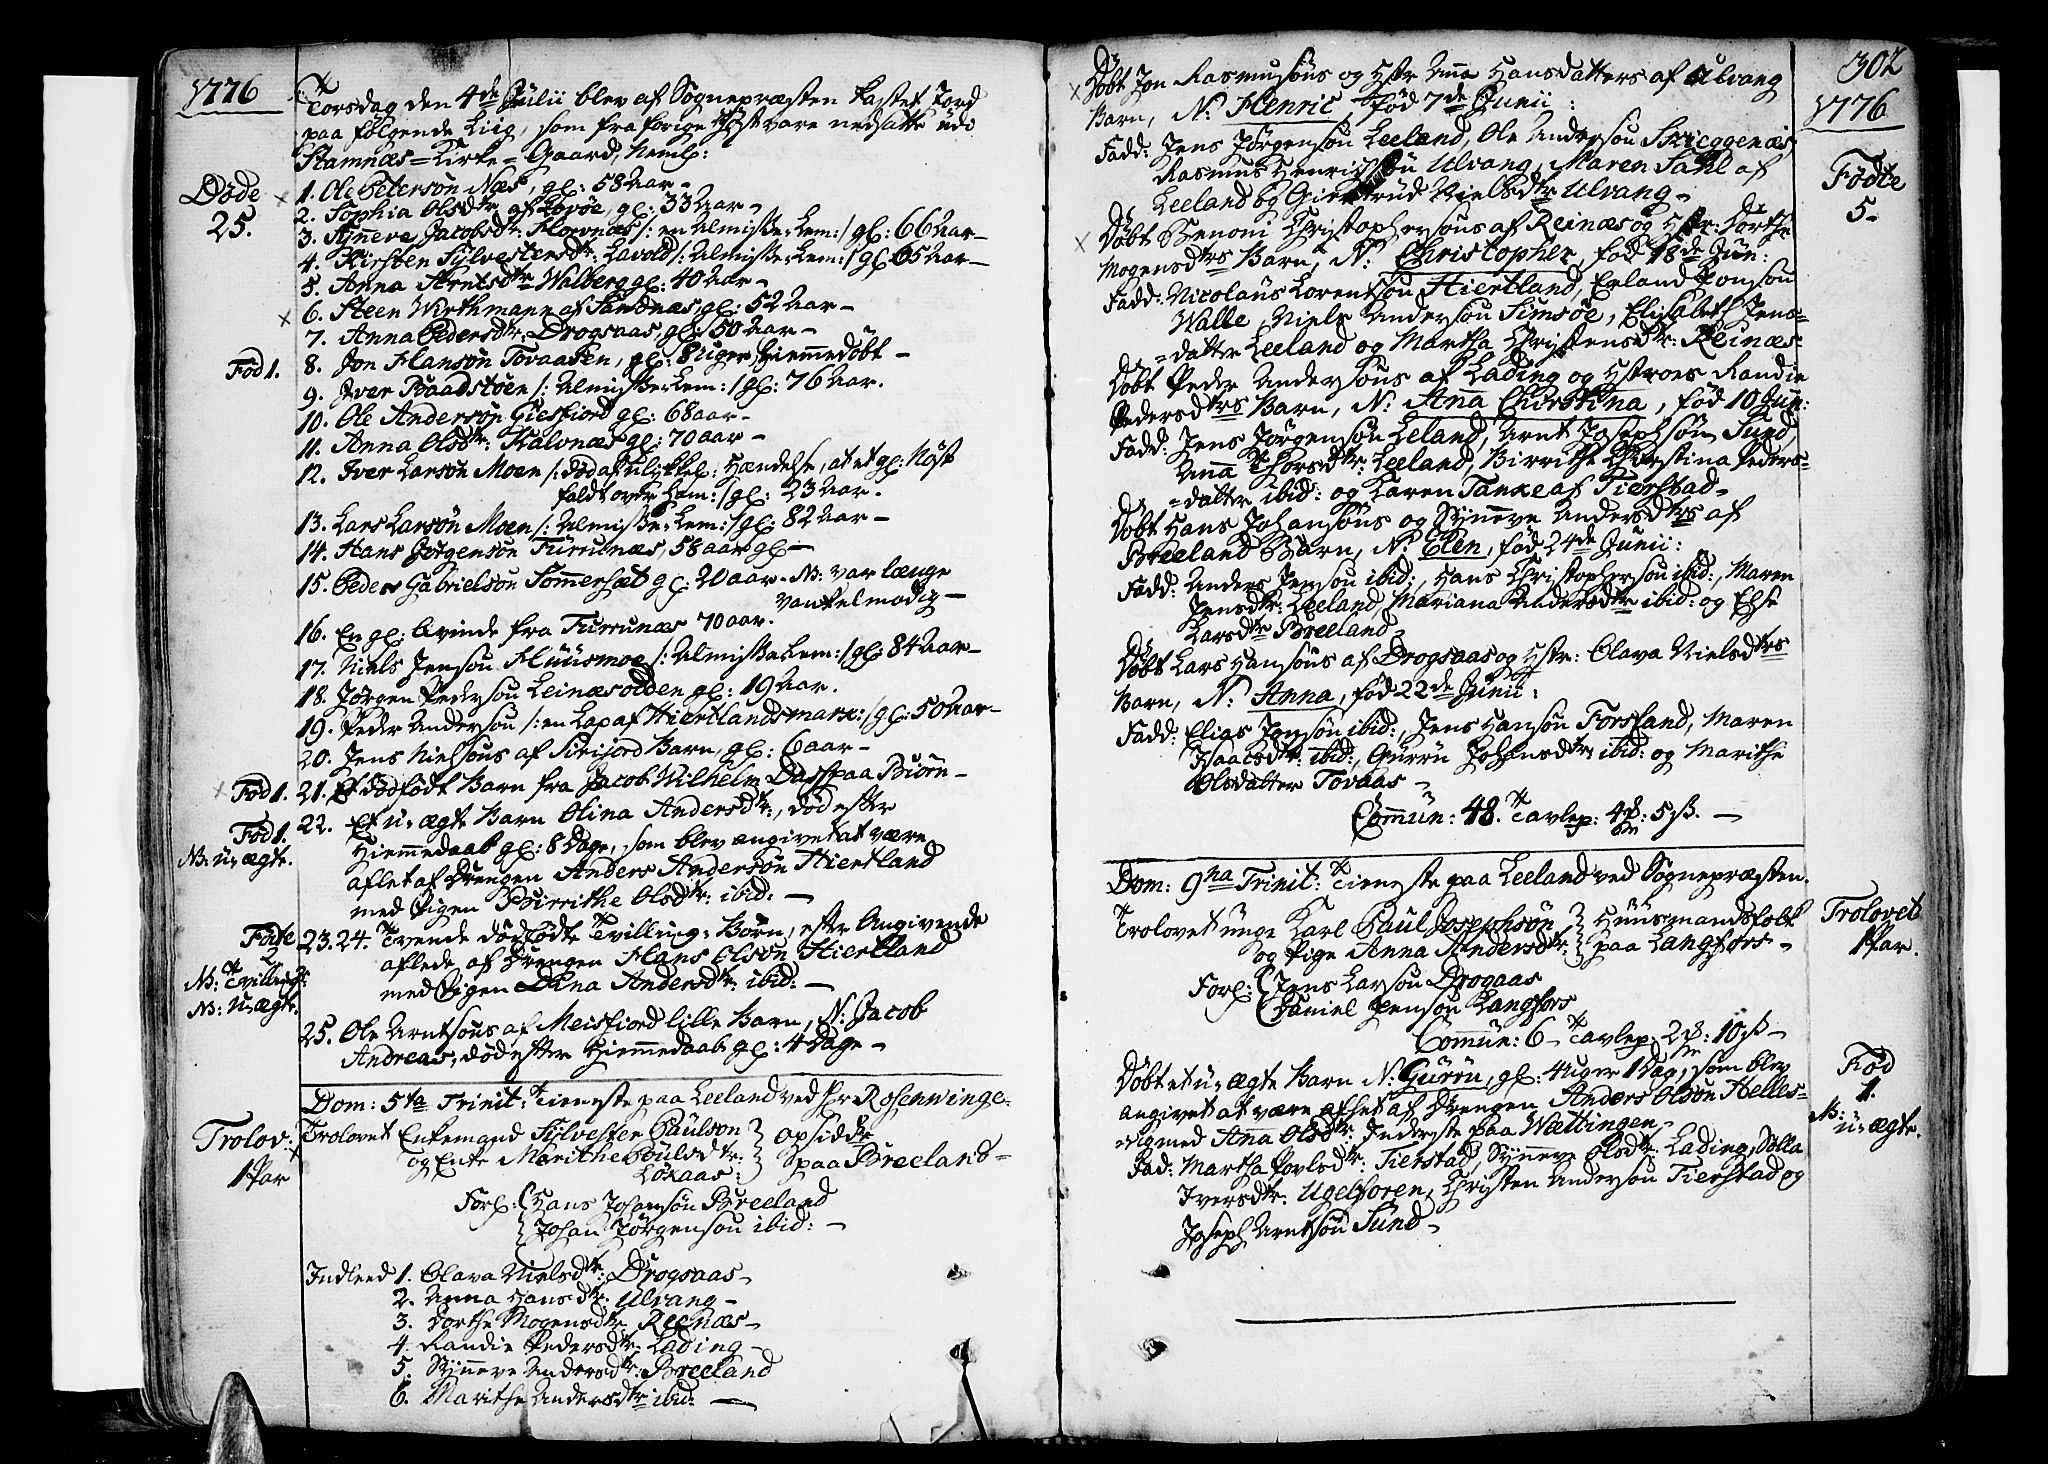 1776
Torsdag den 4de Julii blev af Sognepræsten kastet Jord
paa følgende Liig, som fra forige Høst vare nedsatte udi
Stamnæs=Kirke=Gaard, Neml:
Døde
25.
1. Ole Peterson Næs, gl: 58 Aar –
2. Sophia Olsdtr: af Lovøe, gl: 33 Aar –
3. Synneve Jacobsdr: Flovnæs /: en Almisse=Lem:/ gl: 66 Aar –
4. Kirsten Sylvestersdtr: Lavold /: Almisse=Lem:/ gl: 65 Aar –
5. Anna Arntsdtr Walberg gl: 40 Aar –
6. Steen Wirthmann af Sandnæs, gl: 52 Aar –
7. Anna Pedersdtr: Drogsaas, gl: 50 Aar –
Fød 1.
8. Jon Hansøn Tovaasen, gl: 8 Uger, Hiemmedøbt –
9. Iver Baadstøen /: Almisse=Lem:/ gl: 76 Aar.
10. Ole Andersøn Giesfiord gl: 68 aar –
11. Anna Olsdtr: Kalvnæs gl: 70 aar –
12. Iver Larsøn Moen /: død af Ulykkel: Hændelse, at et gl: Nøst
faldt over ham:/ gl: 23 Aar.
13. Lars Larsøn Moen /: Almisse=Lem:/ gl: 82 Aar –
14. Hans Jørgensøn Furrunæs, 58 aar gl –
15. Peder Gabrielsøn Sommersæt gl: 20 aar – NB: var længe
vankelmodig –
16. En gl: Qvinde fra Furrunæs 70 aar.
17. Niels Jensøn Huusmoe /: Almisse Lem:/ gl: 84 Aar –
18. Jørgen Pedersøn Leinæsodden gl: 19 Aar.
19. Peder Andersøn /: en Lap af Hiertlandsmark:/ gl: 50 Aar –
20. Jens Nielsøns af Sirijord Barn, gl: 6 aar –
Fød 1.
21. Et dødfødt Barn fra Jacob Wilhelm Dass paa Biørn –
Fød 1.
NB: u=ægte.
22. Et u=ægte Barn Olina Andersdtr:, død efter
Hiemmedaab gl: 8 Dage, som blev angivet at være
aflet af Drengen Anders Andersøn Hiertland
med Pigen Birrithe Olsdtr: ibid: –
Fødte
2
NB: Tvilling:
NB: u=ægte.
23. 24. Tvende dødfødte Tvilling=Børn, efter Angivende
aflede af Drengen Hans Olsøn Hiertland
med Pigen Dina Andersdtr: ibid: –
25. Ole Arntsøns af Meisfiord lille Barn, N: Jacob
Andreas, død efter Hiemmedaab gl: 4 Dage –
Dom: 5ta Trinit: Tieneste paa Leeland ved Hr Rosenwinge.
Trolov:
1 Par
Trolovet Enkemand Sylvester Paulsøn } opsidde
og Enke Marithe Poulsdtr. } paa Breeland –
Løkaas:
Forl: { Hans Johansøn Breeland
{ Johan Jørgensøn ibid: –
Indleed 1. Olava Nielsdtr: Drogsaas –
2. Anna Hansdtr. Ulvang –
3. Dorthe Mogensdtr. Reenæs –
4. Randie Pedersdtr: Lading –
5. Synneve Andersdtr: Breeland
6. Marithe Andersdtr ibid: –
302
1776
Fødte
5 –
Døbt Jon Rasmusøns og Hstr Anna Hansdatters af Ulvang
Barn, N: Henric, fød 7de Junii:
Fadd: Jens Jørgensøn Leeland, Ole Andersøn Skieggenæs
Rasmus Henrichsøn Ulvang, Maren Sahl af
Leeland og Giertrud Nielsdtr Ulvang –
Døbt Benoni Christophersøns af Reinæs og Hstr: Dorthe
Mogensdtrs Barn, N: Christopher, fød 18de Jun:
Fadd: Nicolaus Lorentsøn Hiertland, Erland Jonsøn
Walle, Niels Andersøn Simsøe, Elisabeth Jens=
=datter Leeland og Martha Christensdtr: Reinæs –
Døbt Peder Andersøns af Lading og Hstroes Randie
Pedersdtrs Barn, N: Anna Christina, fød 10 Jun:
Fadd: Jens Jørgensøn Leland, Arnt Josephsøn Sund,
Anna Thorsdtr: Leeland, Birrithe Christina Peders=
=datter ibid: og Karen Tanke af Tierstad –
Døbt Hans Johansøns og Synneve Andersdtrs af
Breeland Barn, N: Elen, fød 24de Junii:
Fadd: Anders Jensøn ibid:, Hans Christophersøn ibid:, Maren
Jensdtr: Leeland, Mariana Andersdtr ibid: og Else
Larsdtr Breeland
Døbt Lars Hansøns af Drogsaas og Hstr: Olava Nielsdtrs
Barn, N: Anna, fød 22de Junii:
Fadd: Elias Jonsøn ibid:, Jens Hansøn Forsland, Maren
Isaacsdtr: ibid:, Gurru Johansdtr: ibid: og Marithe
Olsdatter Tovaas –
Commun: 48. Tavlep: 4 : 5 ß. –
Dom: 9na Trinit: Tieneste paa Leeland ved Sognepræsten.
Trolovet
1 Par.
Trolovet unge Karl Paul Josephsøn } Huusmandsfolk
og Pige Anna Andersdtr: } paa Langfors –
Forl: { Jens Larsøn Drogaas
{ Daniel Jensøn Langfors
Commun: 6 – Tavlep: 2 : 10 ß –
Fød
1.
NB:
u=ægte.
Døbt et u=ægte Barn N: Gurru, gl: 4 Uger 1 Dag, som blev
angivet at være aflet af Drengen Anders Olsøn Helles=
=vig med Anna Olsdtr: Inderste paa Wættingen –
Fad: Martha Povlsdtr: Tierstad, Synneve Olsdtr: Lading, Dolla
Iversdtr: Ugelforen, Christen Andersøn Tierstad og
Joseph Arntsøn Sund –